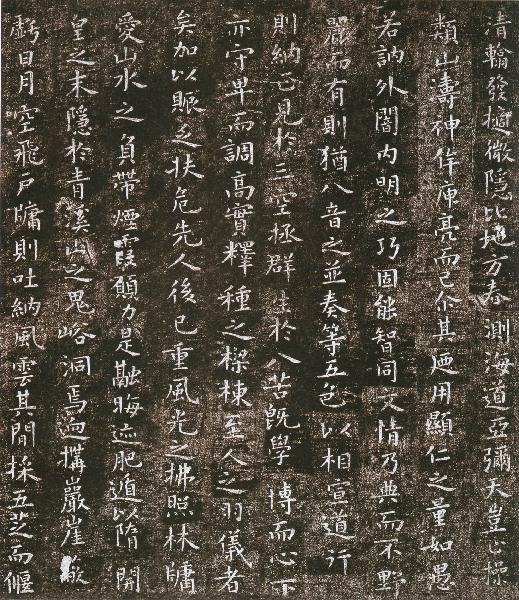 清翰發擿徵隱比地方春測海道亞彌天豈止操
類山濤神侔庾亮而已尒其用顯仁之量如愚
若訥外闇內明之巧固能智同文情乃典而不野
麗而有則猶八音之並奏等五色以相宣道行
則納正見於三空拯群生於八苦既學博而心下
亦守卑而調高實釋種之樑棟至人之羽儀者
矣加以賑乏扶危先人後己重風光之拂照林牖
愛山水之負帶煙霞願力是融晦迹肥遁以隋開
皇之末隱於青溪山之鬼峪洞焉迥構巖崖嶔
虧日月空飛戶牖則吐納風雲其間採五芝而偃